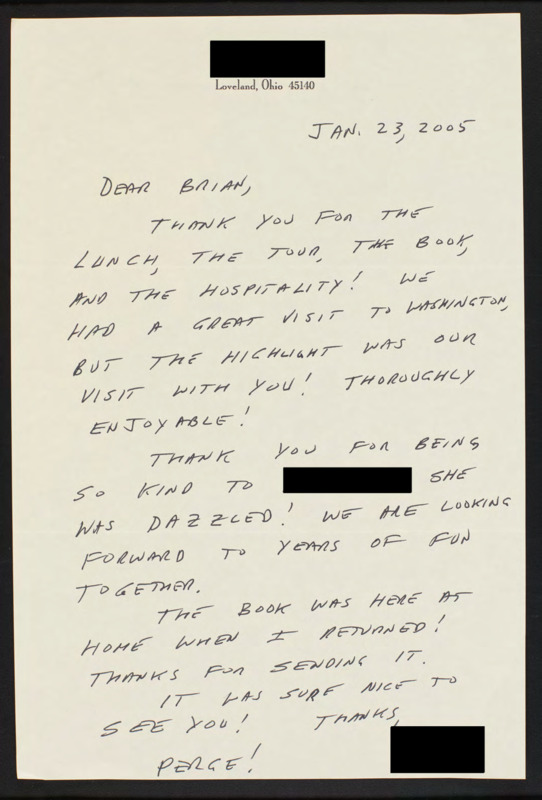 Loveland, Ohio 45140
JAN. 23, 2005
DEAR BRIAN,
THANK YOU FOR THE
LUNCH, THE TOUR, THE BOOK,
AND THE HOSPITALITY! WE
HAD A GREAT VISIT TO WASHINGTON,
BUT THE HIGHLIGHT WAS OUR
VISIT WITH YOU! THOROUGHLY
ENJOYABLE!
THANK YOU FOR BEING
SO KIND TO SHE
WAS DAZZLED! WE ARE LOOKING
FORWARD TO YEARS OF FUN
TOGETHER.
THE BOOK WAS HERE AT
HOME WHEN I RETURNED!
THANKS FOR SENDING IT.
IT WAS SURE NICE TO
SEE YOU! THANKS,
PERGE!